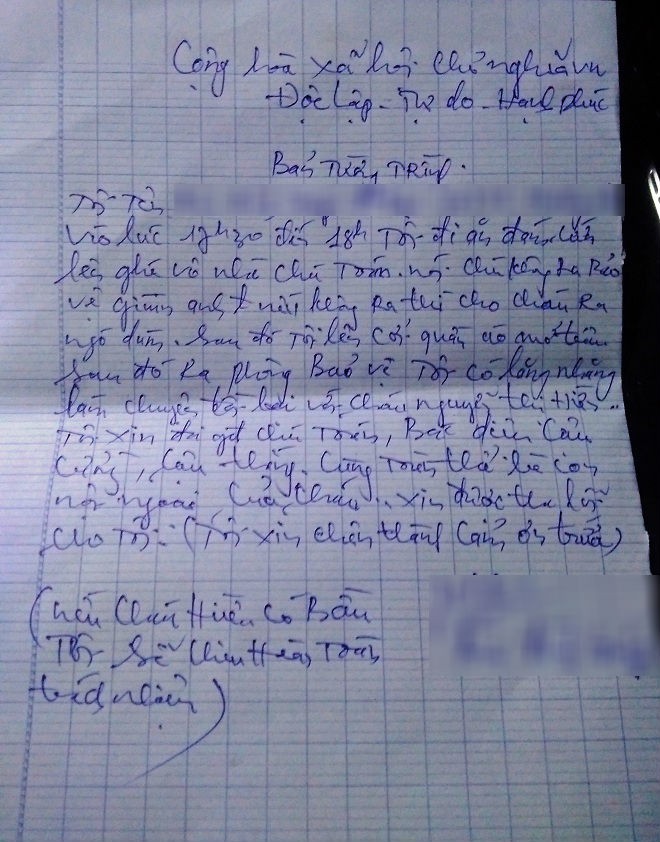 Cộng hòa xã hội chủ nghĩa VN
Độc lập - Tự do - Hạnh phúc
Bản Tường Trình.
Tôi Tên
Vào lúc 17h30 đến 18h Tôi đi ăn đám cưới
lên ghé vô nhà chú Toán. nói chú không ra Bảo
vệ giùm anh nếu không Ra thì cho cháu Ra
ngõ đứng. Sau đó Tôi lên cởi quần áo
Sau đó Ra phòng Bảo vệ Tôi có lằng nhằng
làm chuyện bại với cháu
Tôi xin đại gđ chú Toán, Bác
Cậu thắng. Cùng Toàn thể bà con
nội ngoại, Của, Cháu.. xin được tha lỗi
cho Tôi: (Tôi xin chân thành Cảm ơn trước)
(nếu Cháu Hiền Có Bầu
Tôi Sẽ Chịu Hoàn Toàn
trách nhiệm)